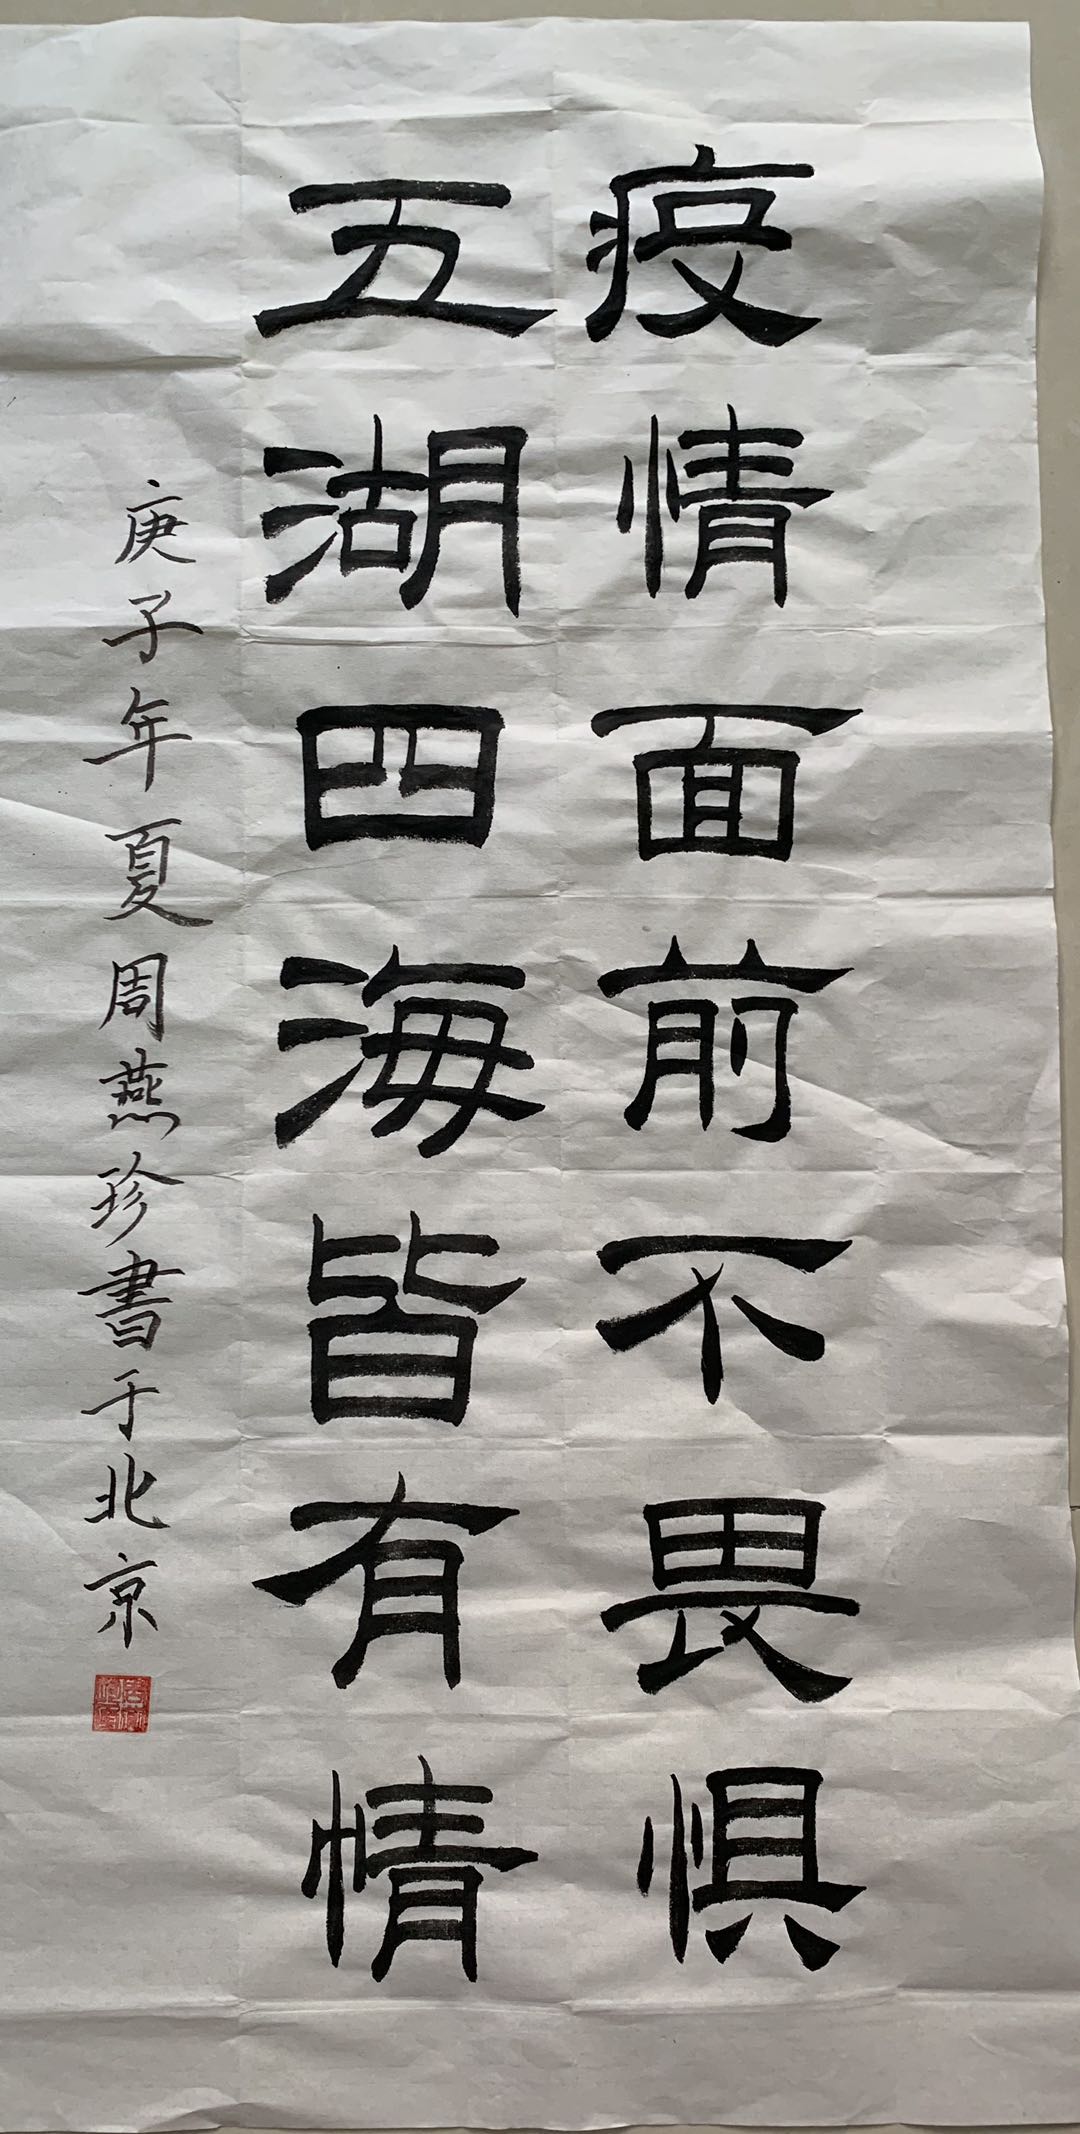 疫情面前不畏惧
五湖四海皆有情
庚子年夏周燕珍書于北京